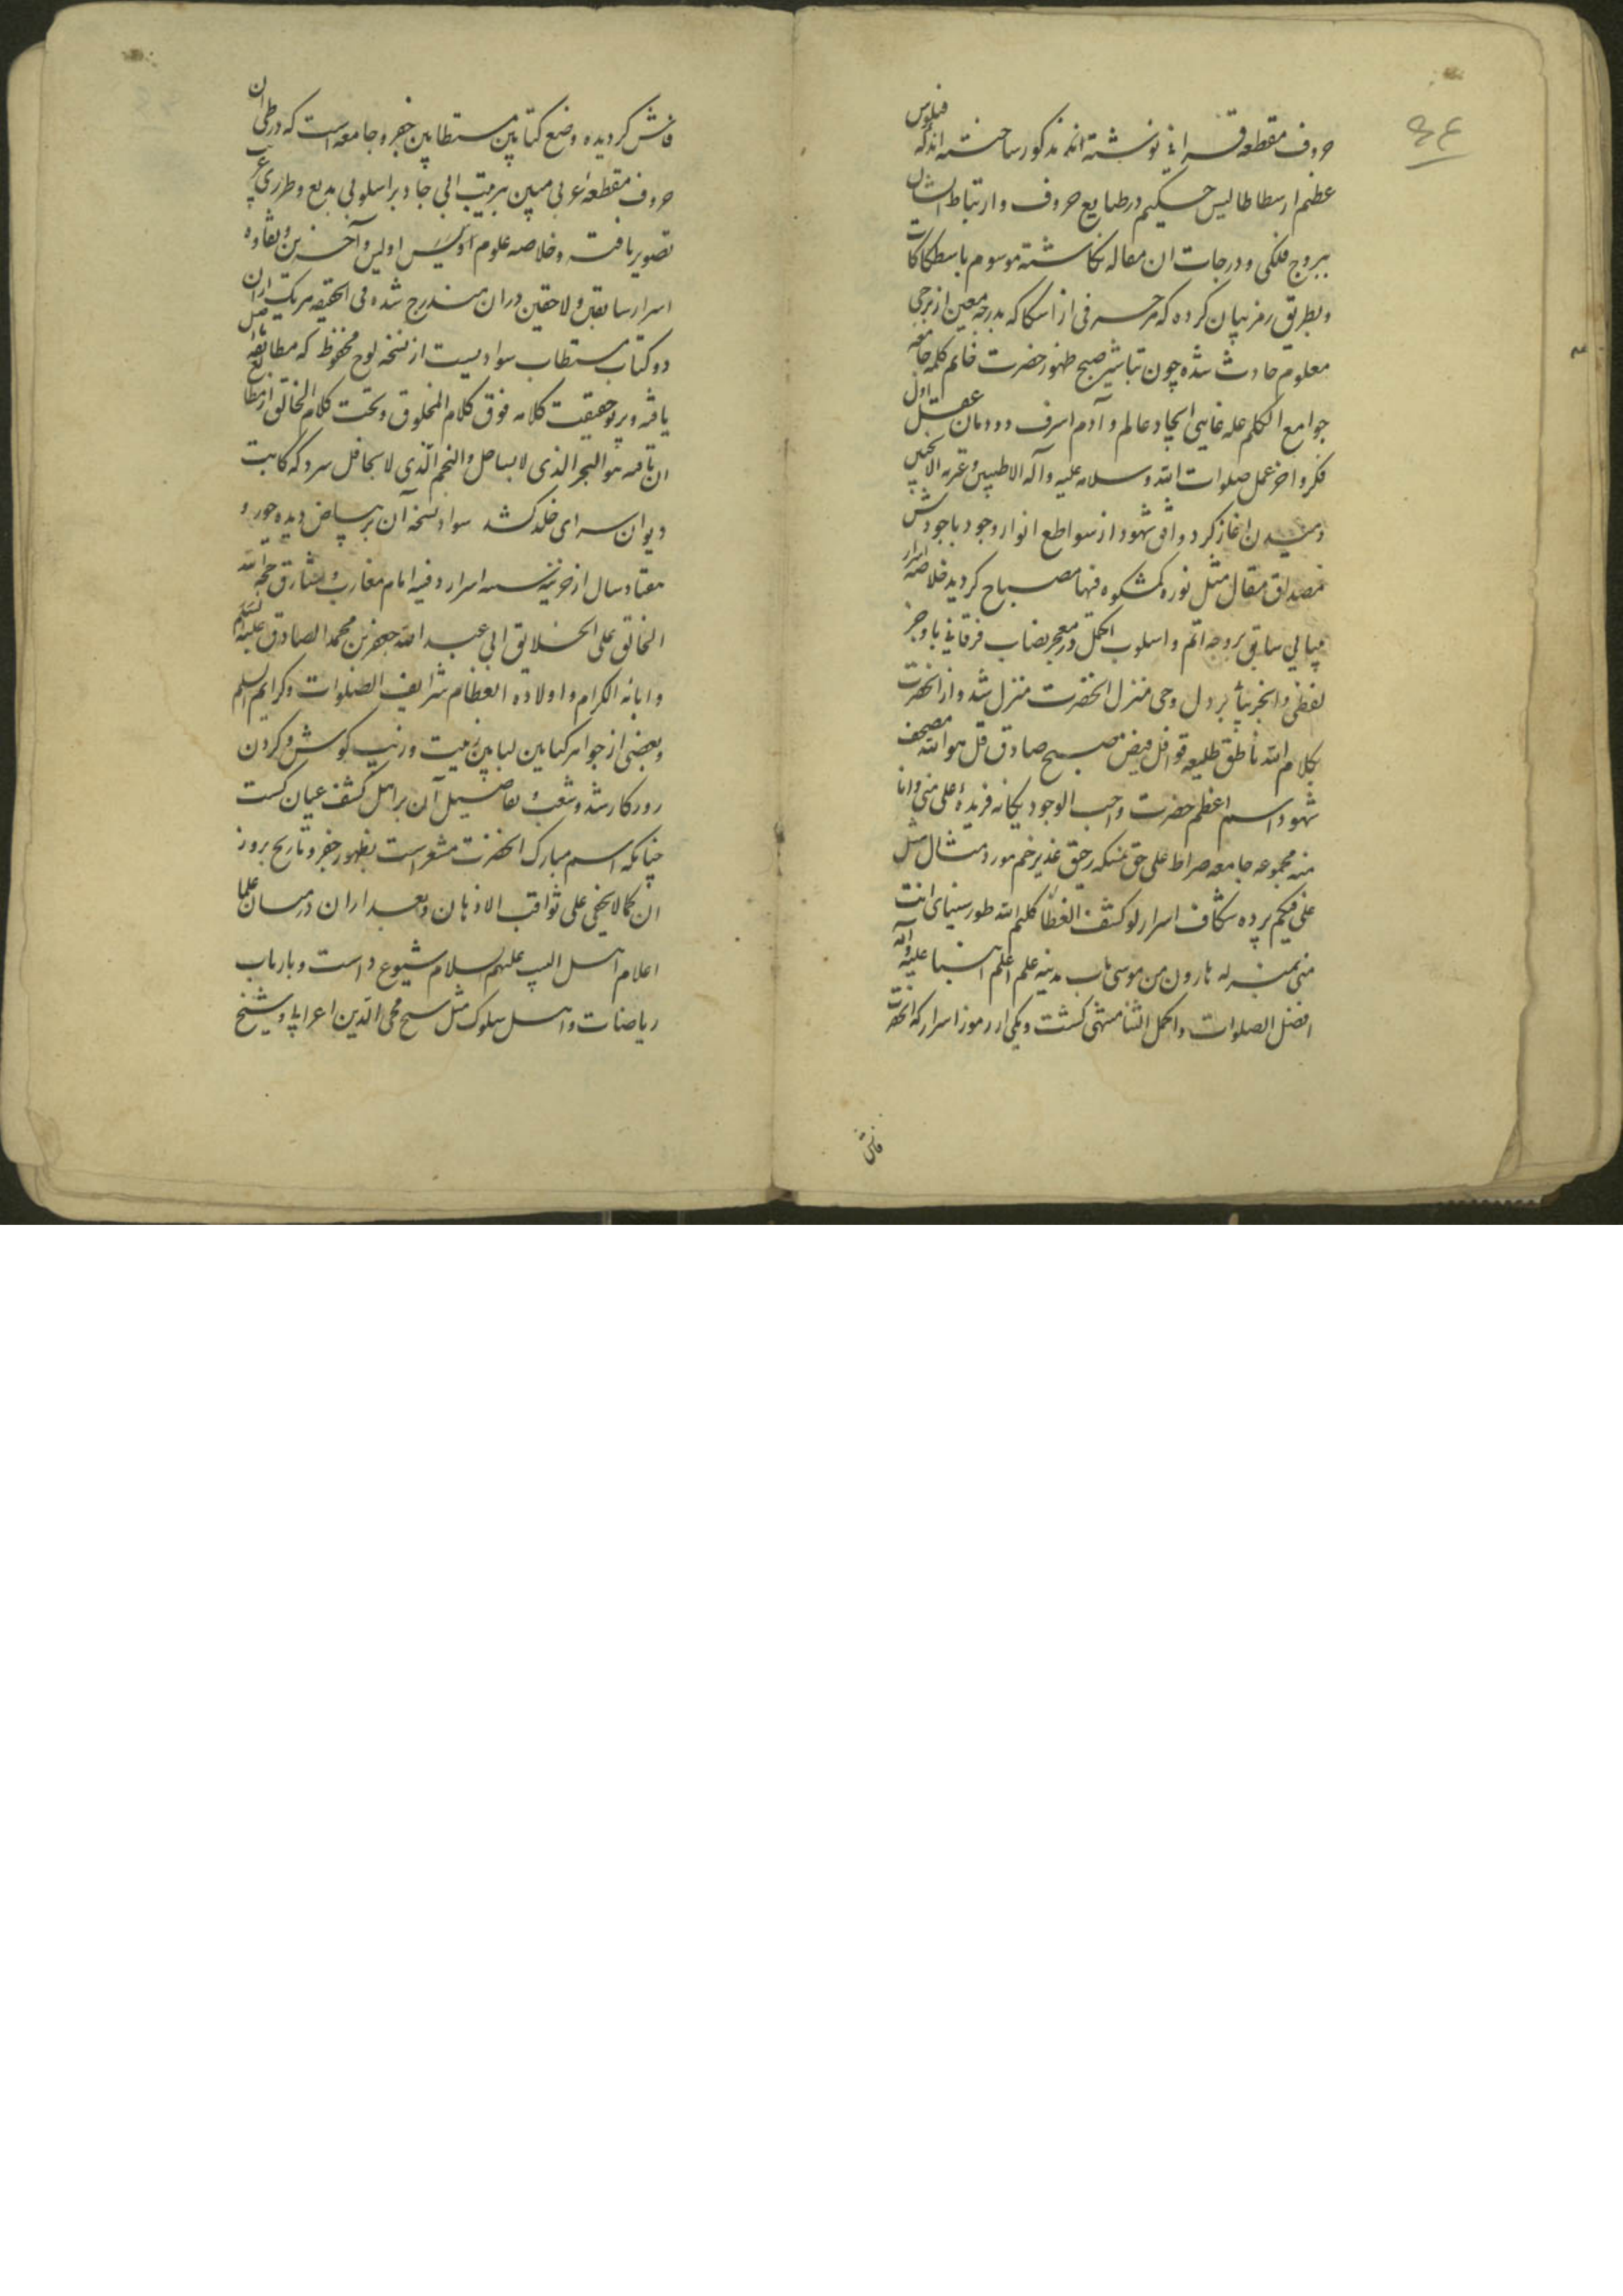 ۴۴
حروف مقطعه قرانی نوشته اند مذکور ساخته اند که فیلوس
عظم ارسطاطالیس حکیم در طبایع حروف و ارتباط ایشان
ببروج فلکی و درجات ان مقاله نکاشته موسوم باسطکاکات
و بطریق رمز بیان کرده که هر حرفی از اشکا که بدرجه معین از برجی
معلوم حادث شده چون تباشیر صبح ظهور حضرت خاتم کلمه جامعه
جوامع الکلم عله غایی ایجاد عالم و آدم اسرف دودمان عقل اول
فکر و اخر عمل صلوات الله و سلامه علیه و آله الاطیبین و عتره الانجبین
دمیدن اغاز کرد و افق شهود از سواطع انوار وجود باجودش
مصداق مقال مثل نوره کمشکوه فیها مصباح کردید خلاصه اسرار
مبانی سابق بروجه اتم و اسلوب اکمل در معجز نصاب فرقانی باوجز
لفظی و انجز بیانی بر دل وحی منزل انحضرت منزل شد و از انحضرت
بکلام الله ناطق طلیعه قوافل فیض صبح صادق قل هو الله مصحف
شهود اسم اعظم حضرت واجب الوجود یکانه فریده علی منی و انا
منه مجموعه جامعه صراط علی حق نمسکه رحیق غدیر خم مورد مثال مثل
علی فیکم پرده شکاف اسرار لو کشف الغطا کلیم الله طور سینای انت
منی بمنزله هارون من موسی باب مدینه علم اعلم انبیا علیه و آله
افضل الصلوات و اکمل الثنا منتهی کشت و یکی از رموز اسرار که انحضرت
فاش
فاش کردیده وضع کتابین مستطابین جفر و جامعه است که در طی ان
حروف مقطعه عربی مبین بترتیب ابی جاد بر اسلوبی بدیع و طرزی غریب
تصویر یافته و خلاصه علوم اولین و آخرین و نقاوه
اسرار سابقین و لاحقین دران مندرج شده فی الحقیقه هر یک ازان
دو کتاب مستطاب سوادیست از نسخه لوح محفوظ که مطابقه اصل
یافته و پرتو حقیقت کلامه فوق کلام المخلوق و تحت کلام الخالق از مطالع
ان تافته هو البحر الذی لا یساحل و النجم الذی لا یحافل سزد که کاتبت
دیوان سرای خلد کشد سواد نسخه آن بر بیاض دیده حور و
هفتاد سال از خزینه اسرار دفینه امام مغارب و مشارق حجه الله
الخالق علی الخلایق ابی عبد الله جعفر بن محمد الصادق علیه السلام
و ابائه الکرام و اولاده العظام شرایف الصلوات و کرایم السلم
و بعضی از جواهر کتابین لبابین زینت و زیب کوش و کردن
روزکار شد و شعب و تفاصیل آن بر اهل کشف عیان کشت
چنانکه اسم مبارک انحضرت مشعر است بظهور جفر و تاریخ بروز
ان کما لا یخفی علی ثواقب الاذهان و بعد ازان در میان علما
اعلام اهل البیت علیهم السلام شیوع داشت و بارباب
ریاضات و اهل سلوک مثل شیخ محی الدین اعرابی و شیخ